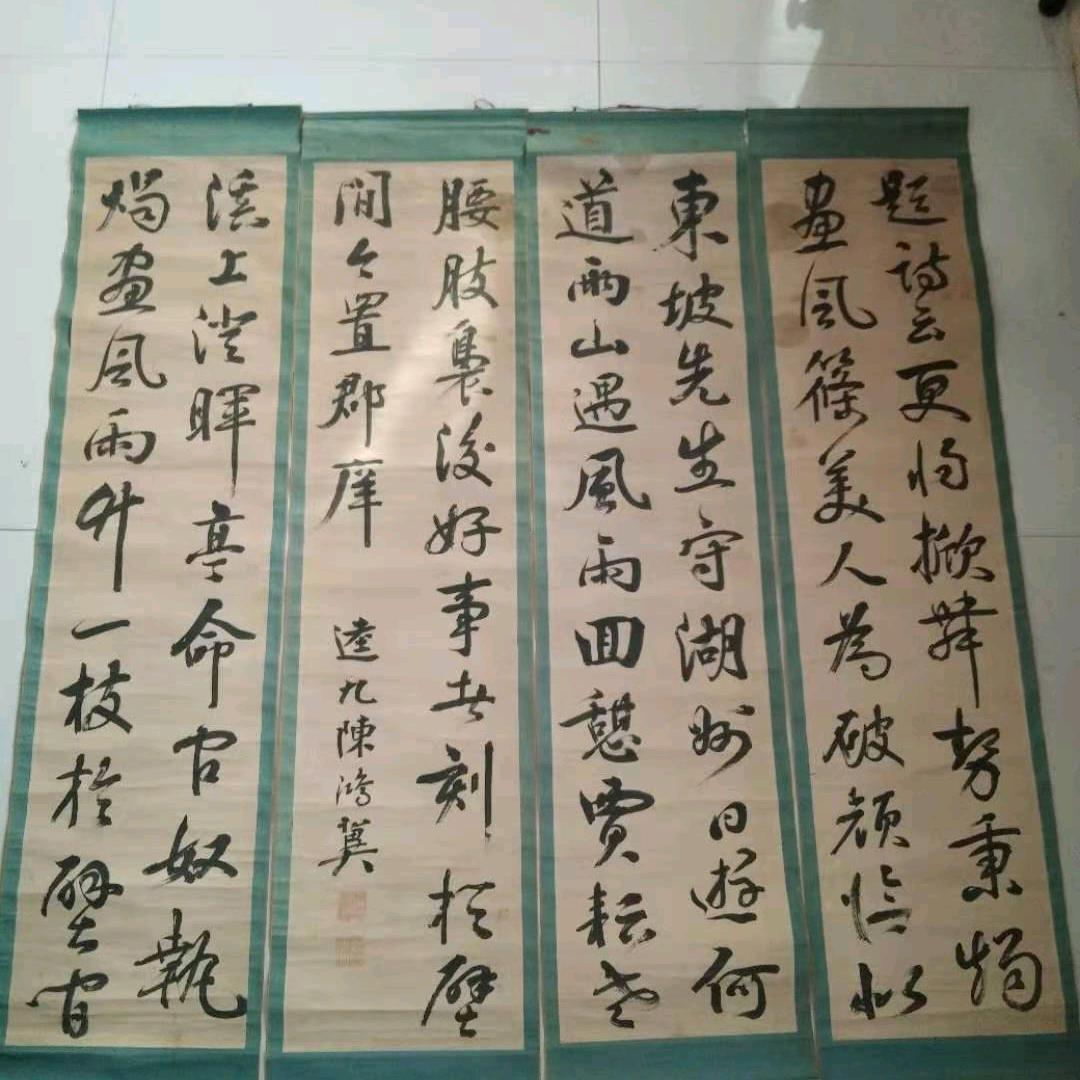 東坡先生守湖州日遊何
道兩山遇風雨回憩賈耘老
溪上澄暉亭命官奴執
燭畫風雨竹一枝於壁間
題詩云更將掀舞勢秉燭
畫風篠美人為破顏恰似
腰肢裊後好事者刻於壁
間今置郡庠
逵九陳鴻冀